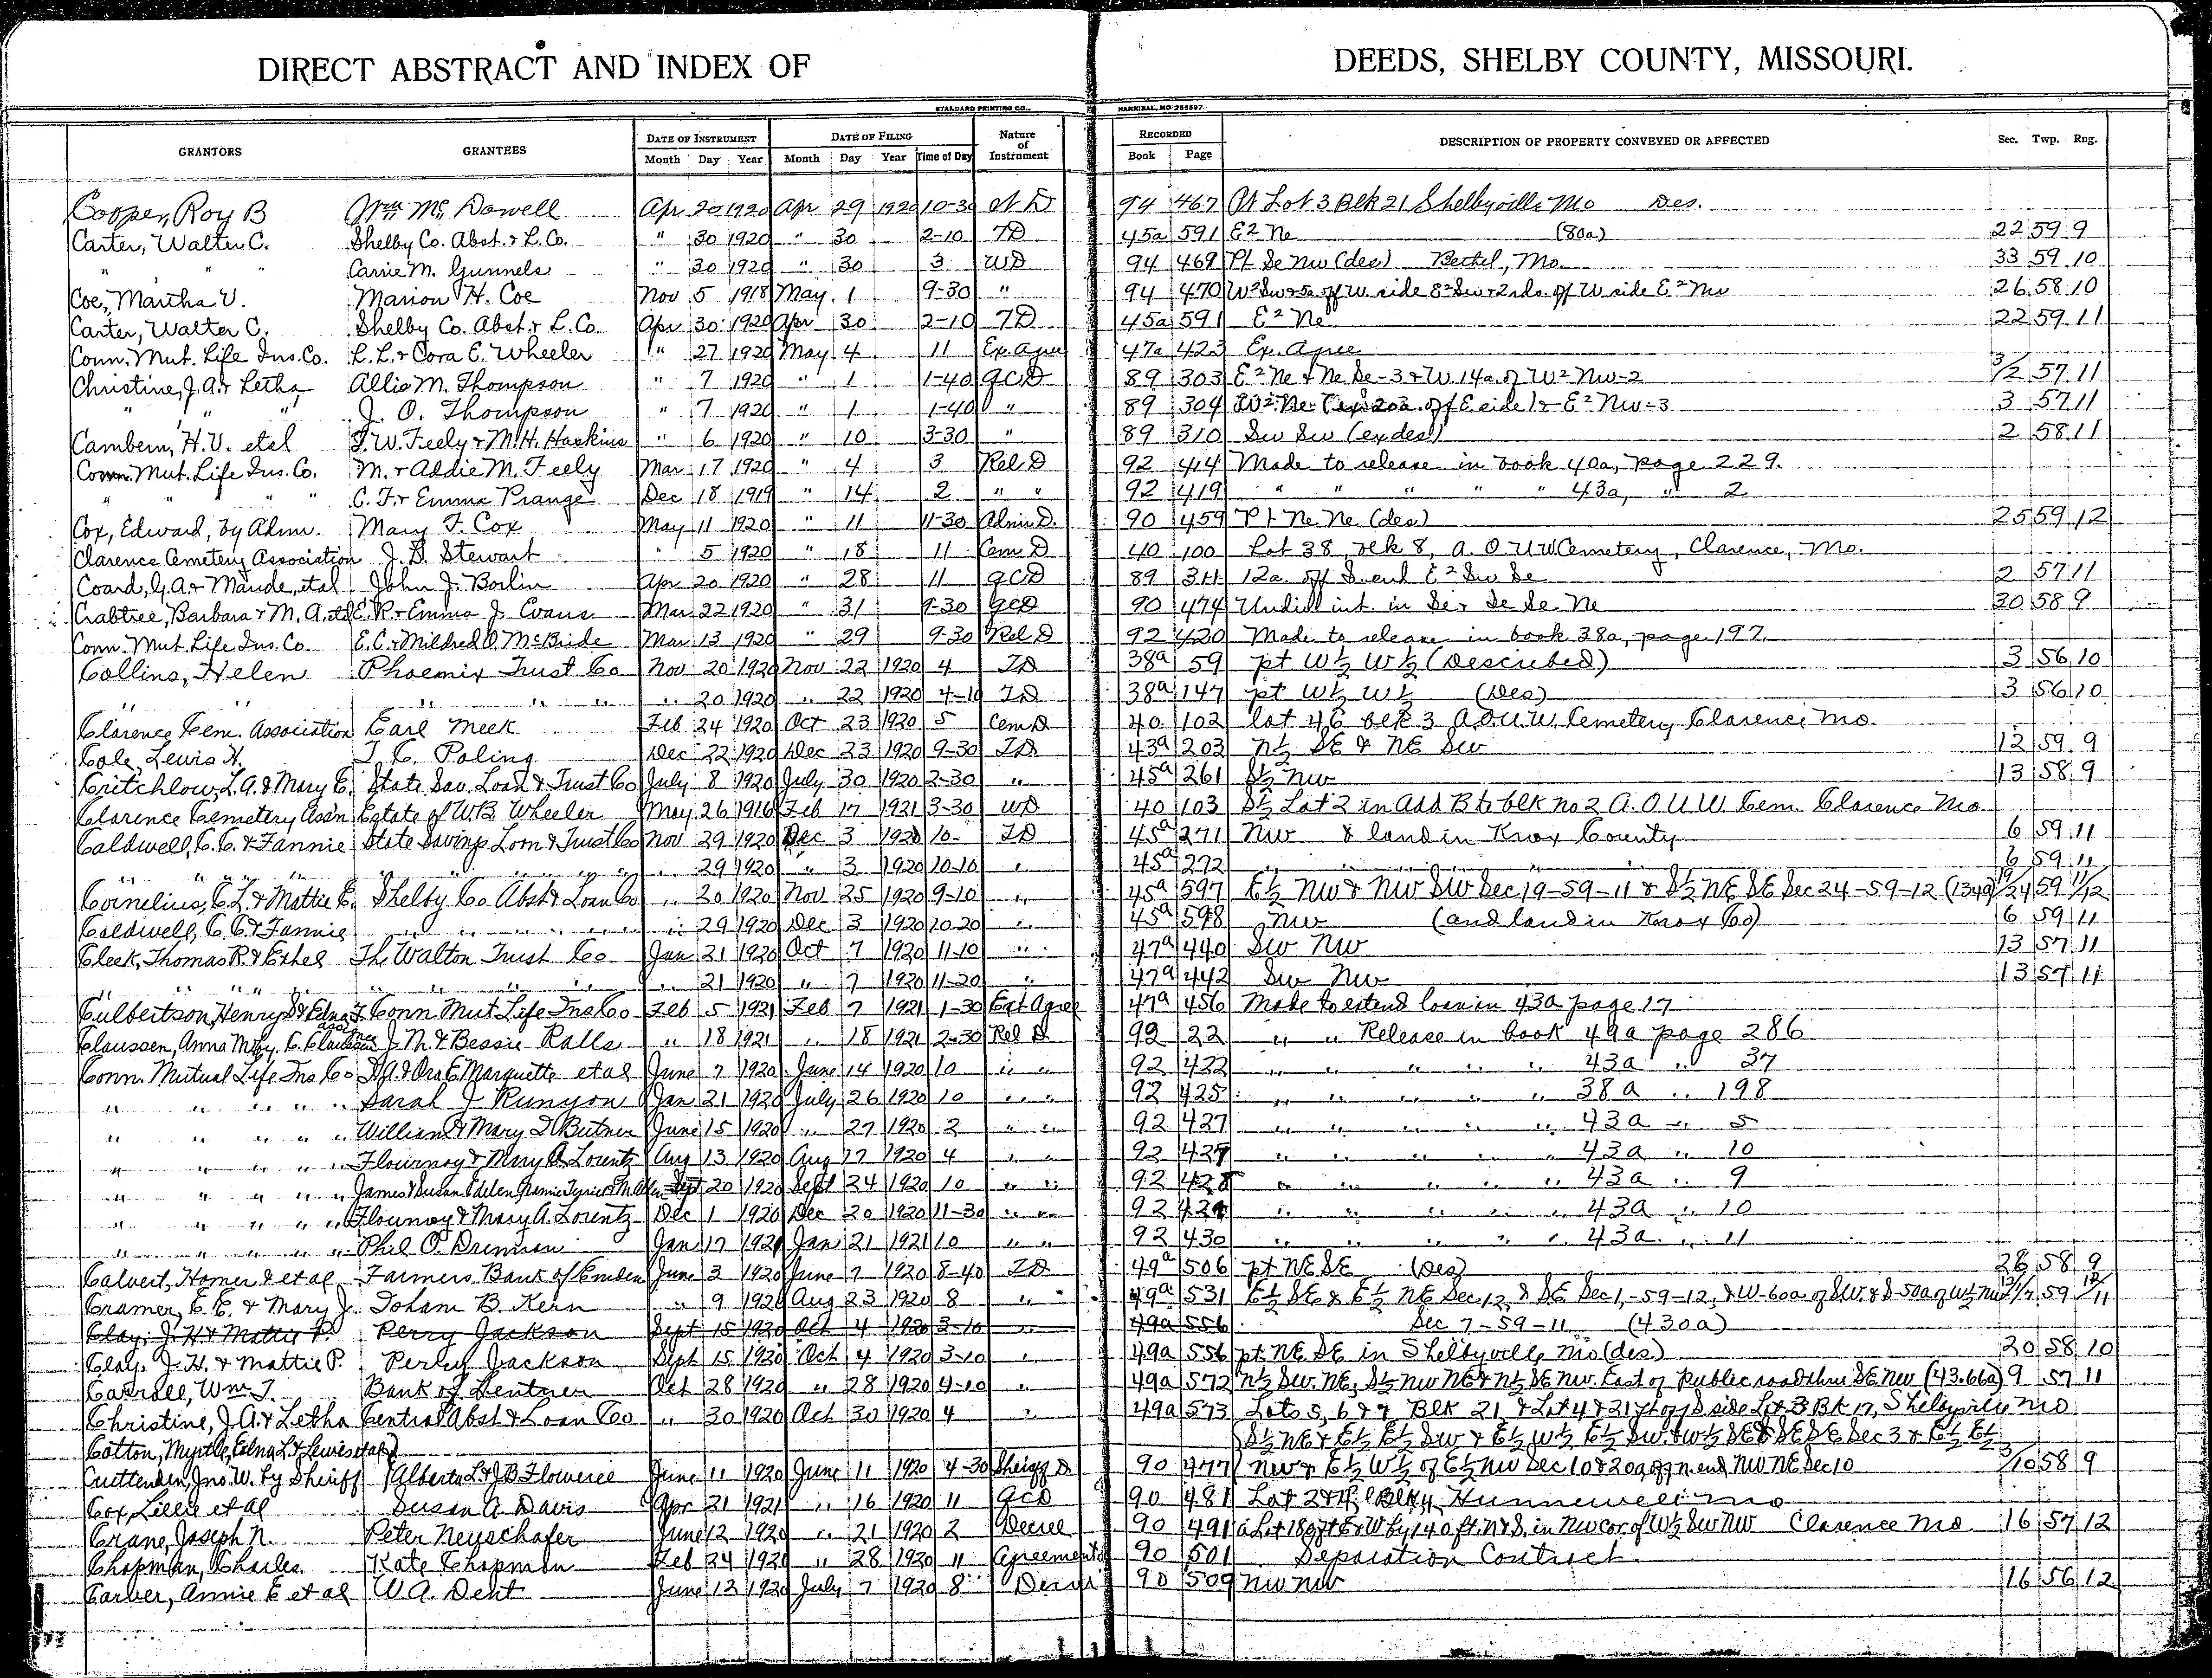 DIRECT ABSTRACT AND INDEX OF DEEDS, SHELBY COUNTY, MISSOURI.
STANDARD PRINTING CO., HANNIBAL, MO 256897
GRANTORS GRANTEES DATE OF INSTRUMENT DATE OF FILING Nature of Instrument RECORDED DESCRIPTION OF PROPERTY CONVEYED OR AFFECTED Sec. Twp. Rng.
Month Day Year Month Day Year Time of Day Book Page
Cooper, Roy B Wm Mc Dowell Apr 20 1920 Apr 29 1920 10-30 94 467 Pt Lot 3 Blk 21 Shelbyville Mo Des.
Carter, Walter C. Shelby Co. Abst. & L. Co. " 30 1920 " 30 2-10 TD 45a 591 E2 Ne (80a) 22 59 9
" " " Carrie M. Gunnels " 30 1920 " 30 3 WD 94 469 Pt Se Nw (des) Bethel, Mo. 33 59 10
Coe, Martha V. Marion H. Coe Nov 5 1918 May 1 9-30 " 94 470 W2 Sw & 5a off W. side E2 Sw & 2rds. off W side E2 Nw 26 58 10
Carter, Walter C. Shelby Co. Abst. & L. Co. Apr 30 1920 Apr 30 2-10 TD 45a 591 E2 Ne 22 59 11
Conn. Mut. Life Ins. Co. L. L. & Cora E. Wheeler " 27 1920 May 4 11 Ex. Agree 47a 423 Ex. Agree
Christine, J. A. & Letha Allie M. Thompson " 7 1920 " 1 1-40 GCD 89 303 E2 Ne & Ne Se-3 & W. 14a. of W2 Nw-2 3/2 57 11
" " " J. O. Thompson " 7 1920 " 1 1-40 " 89 304 W2 Ne (ex 20a. off E side) & E2 Nw-3 3 57 11
Cambern, H. V. etal F. W. Feely & M. H. Haskins " 6 1920 " 10 3-30 " 89 310 Sw Sw (ex des) 2 58 11
Conn. Mut. Life Ins. Co. M. & Addie M. Feely Mar 17 1920 " 4 3 Rel D 92 414 Made to release in book 40a, page 229.
" " " " C. F. & Emma Prange Dec 18 1919 " 14 2 " " 92 419 " " " " " 43a, " 2
Cox, Edward, by Admr. Mary F. Cox May 11 1920 " 11 11-30 Adm D. 90 459 Pt Ne Ne (des) 25 59 12
Clarence Cemetery Association J. D. Stewart " 5 1920 " 18 11 Cem D 40 100 Lot 38, blk 8, A. O. U W Cemetery, Clarence, Mo.
Coard, G. A. & Maude, etal John J. Boilin Apr 20 1920 " 28 11 GCD 89 311 12a. off S. end E2 Sw Se 2 57 11
Crabtree, Barbara & M. A. etal E. R. & Emma J. Evans Mar 22 1920 " 31 9-30 GCD 90 474 Undiv int. in Se & Se Se Ne 30 58 9
Conn. Mut. Life Ins. Co. E. C. & Mildred O. McBride Mar 13 1920 " 29 9-30 Rel D 92 420 Made to release in book 38a, page 197.
Collins, Helen Phoenix Trust Co Nov 20 1920 Nov 22 1920 4 TD 38a 59 pt W½ W½ (Described) 3 56 10
" " " " " " 20 1920 " 22 1920 4-10 TD 38a 147 pt W½ W½ (Des) 3 56 10
Clarence Cem. Association Earl Meek Feb 24 1920 Oct 23 1920 5 Cem D 40 102 lot 46 blk 3 A.O.U.W. Cemetery Clarence Mo.
Cole, Lewis H. T. C. Poling Dec 22 1920 Dec 23 1920 9-30 TD 43a 203 N½ SE & NE SW 12 59 9
Critchlow, L. A. & Mary E. State Sav. Loan & Trust Co July 8 1920 July 30 1920 2-30 " 45a 261 S½ NW 13 58 9
Clarence Cemetery Ass'n Estate of W.B. Wheeler May 26 1916 Feb 17 1921 3-30 WD 40 103 S½ Lot 2 in Add B to blk no 2 A. O. U. W. Cem. Clarence Mo
Caldwell, C. C. & Fannie State Savings Loan & Trust Co Nov 29 1920 Dec 3 1920 10- TD 45a 271 NW & land in Knox County 6 59 11
" " " " " " " " " " 29 1920 " 3 1920 10-10 " 45a 272 " " " " " 6 59 11
Cornelius, C. L. & Mattie E. Shelby Co Abst & Loan Co " 20 1920 Nov 25 1920 9-10 " 45a 597 E½ NW & NW SW Sec 19-59-11 & S½ NE SE Sec 24-59-12 (134a) 19/24 59 11/12
Caldwell, C. C. & Fannie " " " " " " " 29 1920 Dec 3 1920 10-20 " 45a 598 NW (and land in Knox Co) 6 59 11
Cleek, Thomas R. & Ethel The Walton Trust Co Jan 21 1920 Oct 7 1920 11-10 " 47a 440 SW NW 13 57 11
" " " " " " " " " 21 1920 " 7 1920 11-20 " 47a 442 SW NW 13 57 11
Culbertson, Henry S & Edna F. Conn Mut Life Ins Co Feb 5 1921 Feb 7 1921 1-30 Ext Agree 47a 456 Made to extend loan in 43a page 17
Claussen, Anna M by. C. Claussen J. N. & Bessie Ralls " 18 1921 " 18 1921 2-30 Rel D 92 22 " " Release in book 49a page 286
Conn. Mutual Life Ins Co & Ora E. Marquette et al June 7 1920 June 14 1920 10 " " 92 422 " " " " " 43a " 37
" " " " " Sarah J Runyon Jan 21 1920 July 26 1920 10 " " 92 425 " " " " " 38a " 198
" " " " " William & Mary Butner June 15 1920 " 27 1920 2 " " 92 427 " " " " " 43a " 5
" " " " " Flournoy & Mary A. Lorentz Aug 13 1920 Aug 17 1920 4 " " 92 427 " " " " " 43a " 10
" " " " " James & Susan Sept 20 1920 Sept 24 1920 10 " " 92 428 " " " " " 43a " 9
" " " " " Flournoy & Mary A. Lorentz Dec 1 1920 Dec 20 1920 11-30 " " 92 429 " " " " " 43a " 10
" " " " " Phil O. Drennan Jan 17 1921 Jan 21 1921 10 " " 92 430 " " " " " 43a " 11
Calvert, Homer & et al Farmers Bank of Emden June 3 1920 June 7 1920 8-40 TD 49a 506 pt NE SE (Des) 28 58 9
Cramer, E. E. & Mary J. Toham B. Kern " 9 1920 Aug 23 1920 8 " 49a 531 E½ SE & E½ NE Sec 12, & SE Sec 1,-59-12, & W-60a of SW. & S-50a of W½ NW 12/1/7 59 12/11
Clay, J. H & Mattie P. Perry Jackson Sept 15 1920 Oct 4 1920 3-10 " 49a 556 Sec 7-59-11 (430a)
Clay, J. H. & Mattie P. Perry Jackson Sept 15 1920 Oct 4 1920 3-10 " 49a 556 pt NE SE in Shelbyville Mo (des) 20 58 10
Carroll, Wm. T. Bank of Lentner Oct 28 1920 " 28 1920 4-10 " 49a 572 N½ SW. NE, S½ NW NE & N½ SE NW. East of Public road thru SE NW (43.66a) 9 57 11
Christine, J. A. & Letha Central Abst & Loan Co " 30 1920 Oct 30 1920 4 " 49a 573 Lots 5, 6 & 7 Blk 21 & Lot 4 & 21 ft off S side Lot 3 Bk 17, Shelbyville Mo
Cotton, Myrtle, Edna L. & Lewis et al S½ NE & E½ E½ SW & E½ W½ E½ SW. & W½ SE & SE SE Sec 3 & E½ E½
Cruttenden, Jno. W. by Sheriff Alberta L. & J. B. Floweree June 11 1920 June 11 1920 4-30 Sheriff D 90 477 NW & E½ W½ of E½ NW Sec 10 & 20a off n. end NW NE Sec 10 3/10 58 9
Cox, Lillie et al Susan A. Davis Apr 21 1921 " 16 1920 11 GCD 90 481 Lot 2 Blk 4 Hunnewell Mo
Crane, Joseph N. Peter Neuschafer June 12 1920 " 21 1920 2 Decree 90 491 a Lot 180 ft E & W by 140 ft. N & S. in NW cor. of W½ SW NW Clarence Mo 16 57 12
Chapman, Charles Kate Chapman Feb 24 1920 " 28 1920 11 Agreement 90 501 Separation Contract
Carver, Annie E et al W. A. Dent June 12 1920 July 7 1920 8 90 509 NW NW 16 56 12